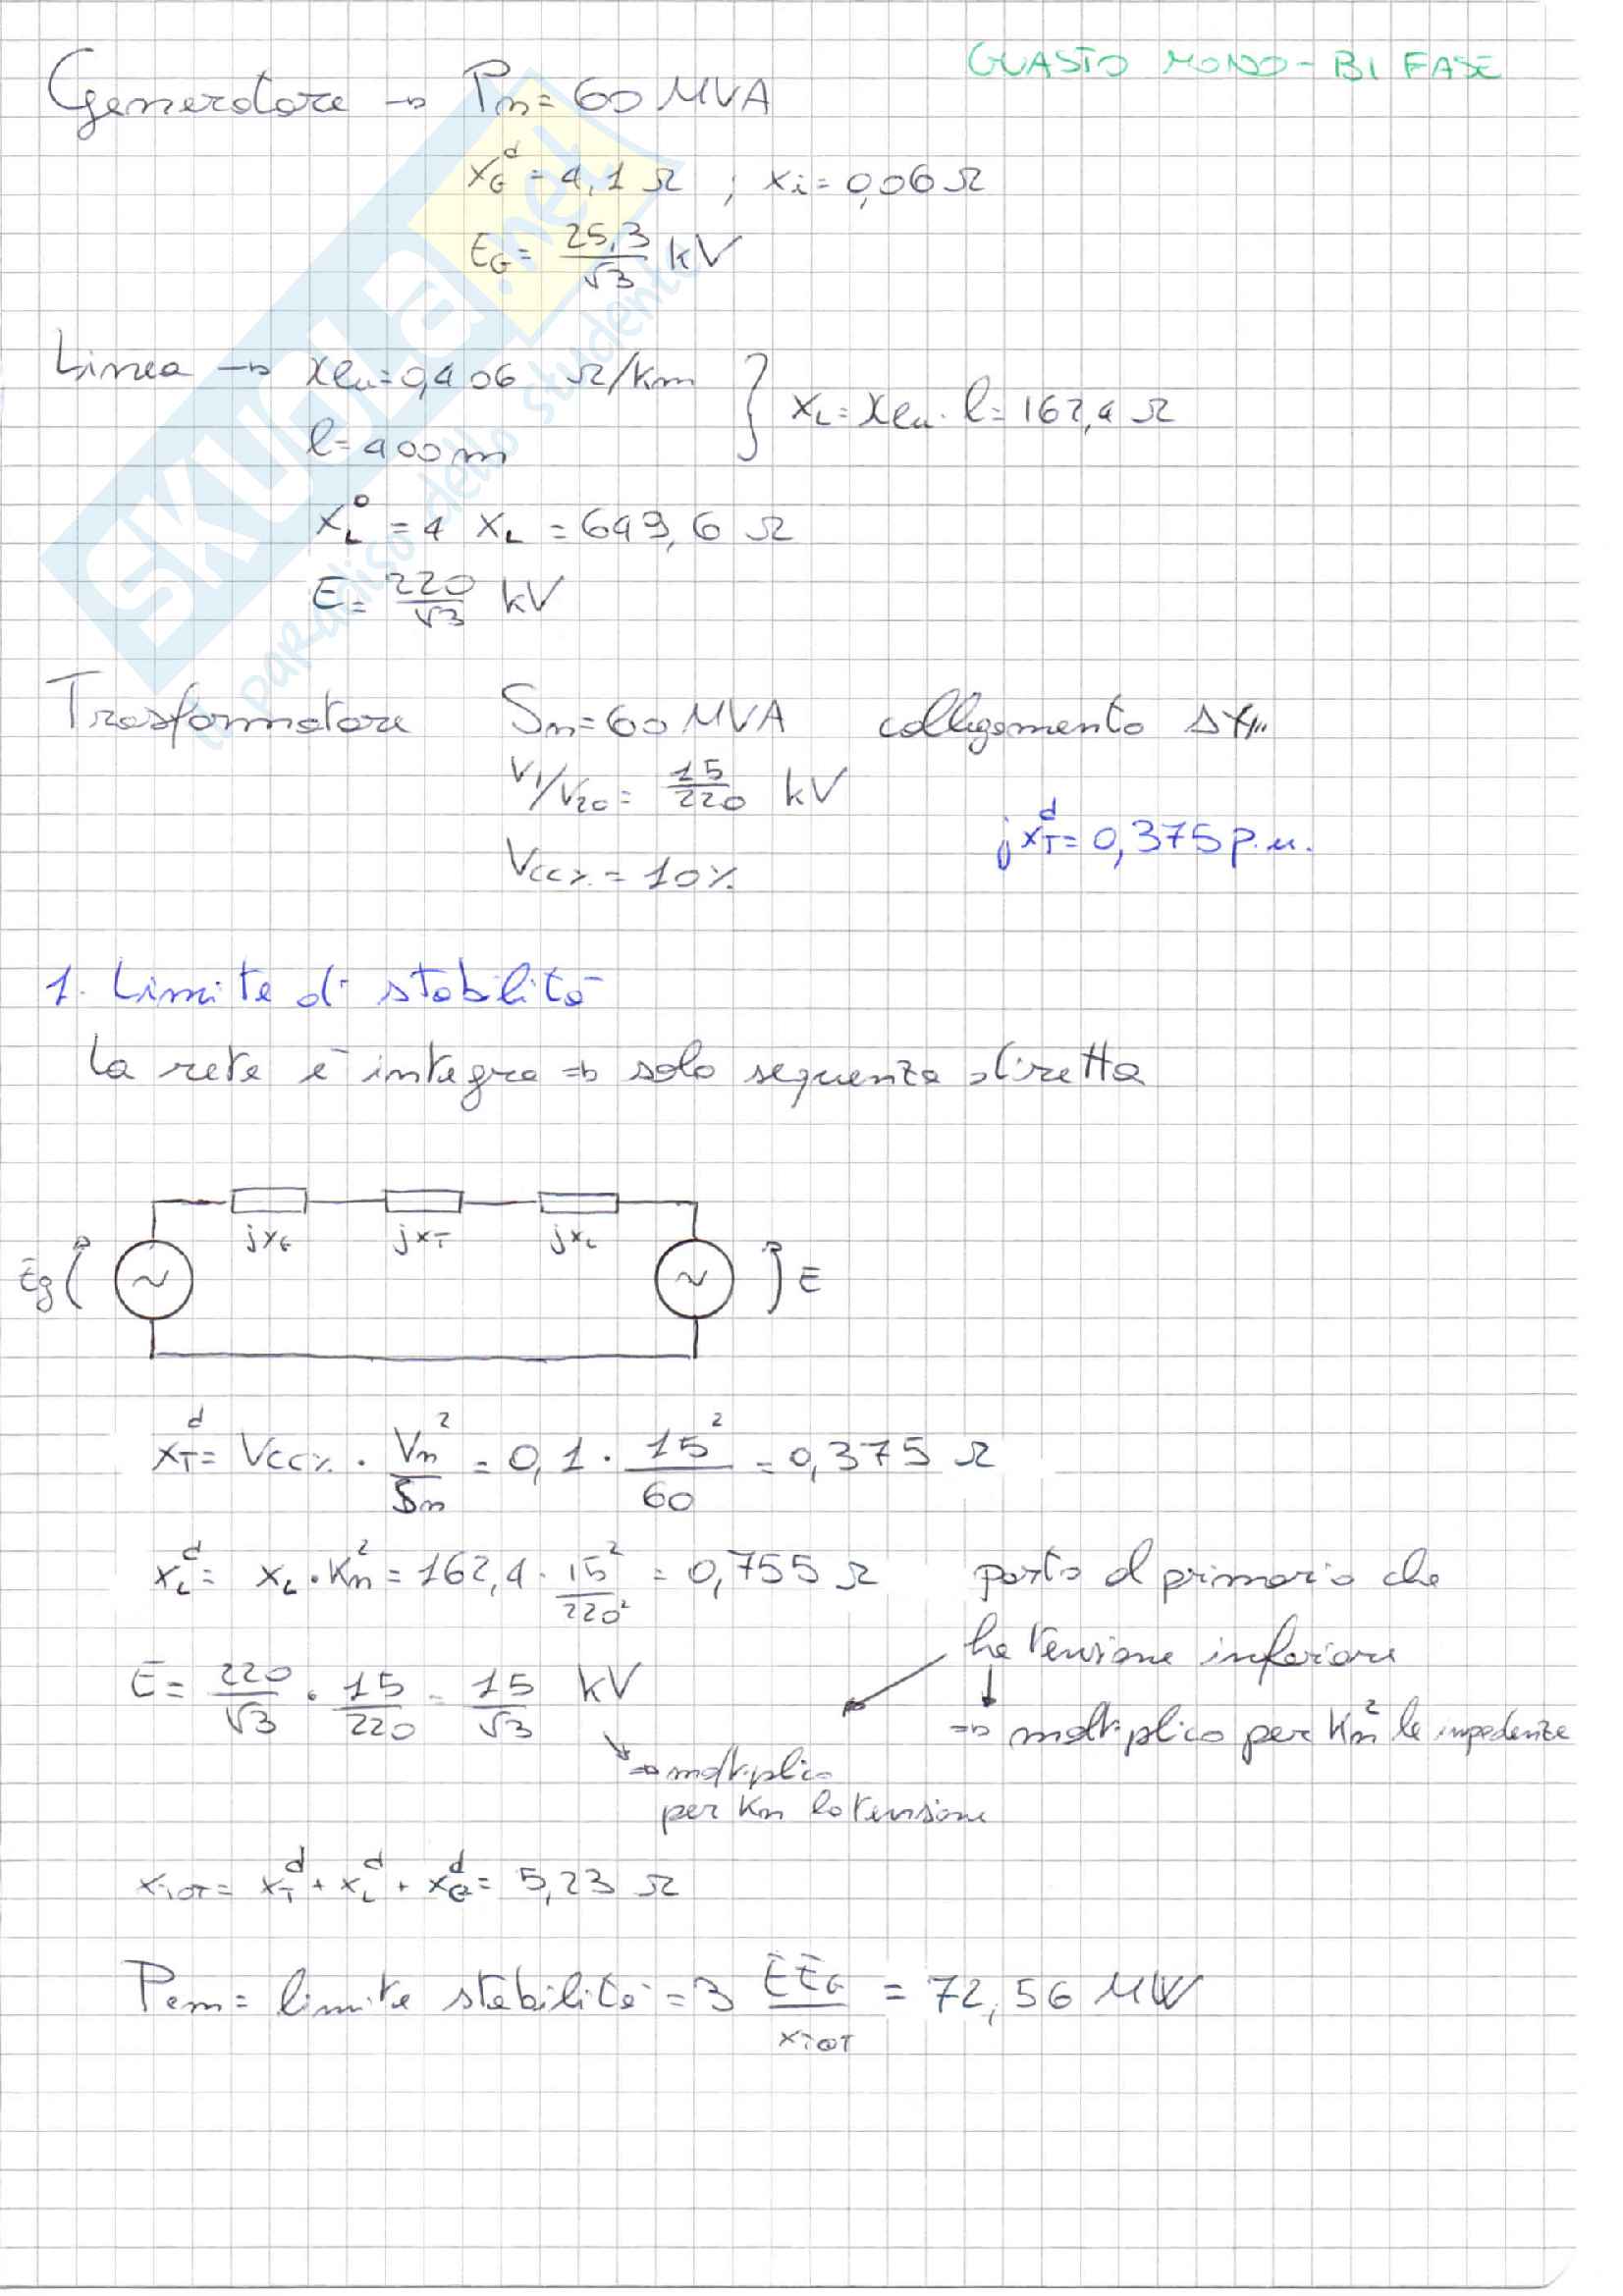 GUASTO MONO-BIFASE
Generatore → Pn = 60 MVA
xG^d = 4,1 Ω ; xi = 0,06 Ω
EG = 25,3/√3 kV
Linea → xlu = 0,406 Ω/km
l = 400 m
} xL = xlu · l = 162,4 Ω
xL^o = 4 xL = 649,6 Ω
E = 220/√3 kV
Trasformatore Sn = 60 MVA collegamento ΔY
V1/V20 = 15/220 kV
jxT^d = 0,375 p.u.
Vcc% = 10%
1. Limite di stabilità
la rete è integra ⇒ solo sequenza diretta
jxG jxT jxL
Ēg ~ ~ E
xT^d = Vcc% · Vn²/Sn = 0,1 · 15²/60 = 0,375 Ω
xL^d = xL · Kn² = 162,4 · 15²/220² = 0,755 Ω porto al primario che
ha tensione inferiore
Ē = 220/√3 · 15/220 = 15/√3 kV
⇒ moltiplico per Kn² le impedenze
⇒ moltiplico
per Kn la tensione
xTOT = xT^d + xL^d + xG^d = 5,23 Ω
Pem = limite stabilità = 3 ĒĒG/xTOT = 72,56 MW
SKUOLA.net
il paradiso dello studente